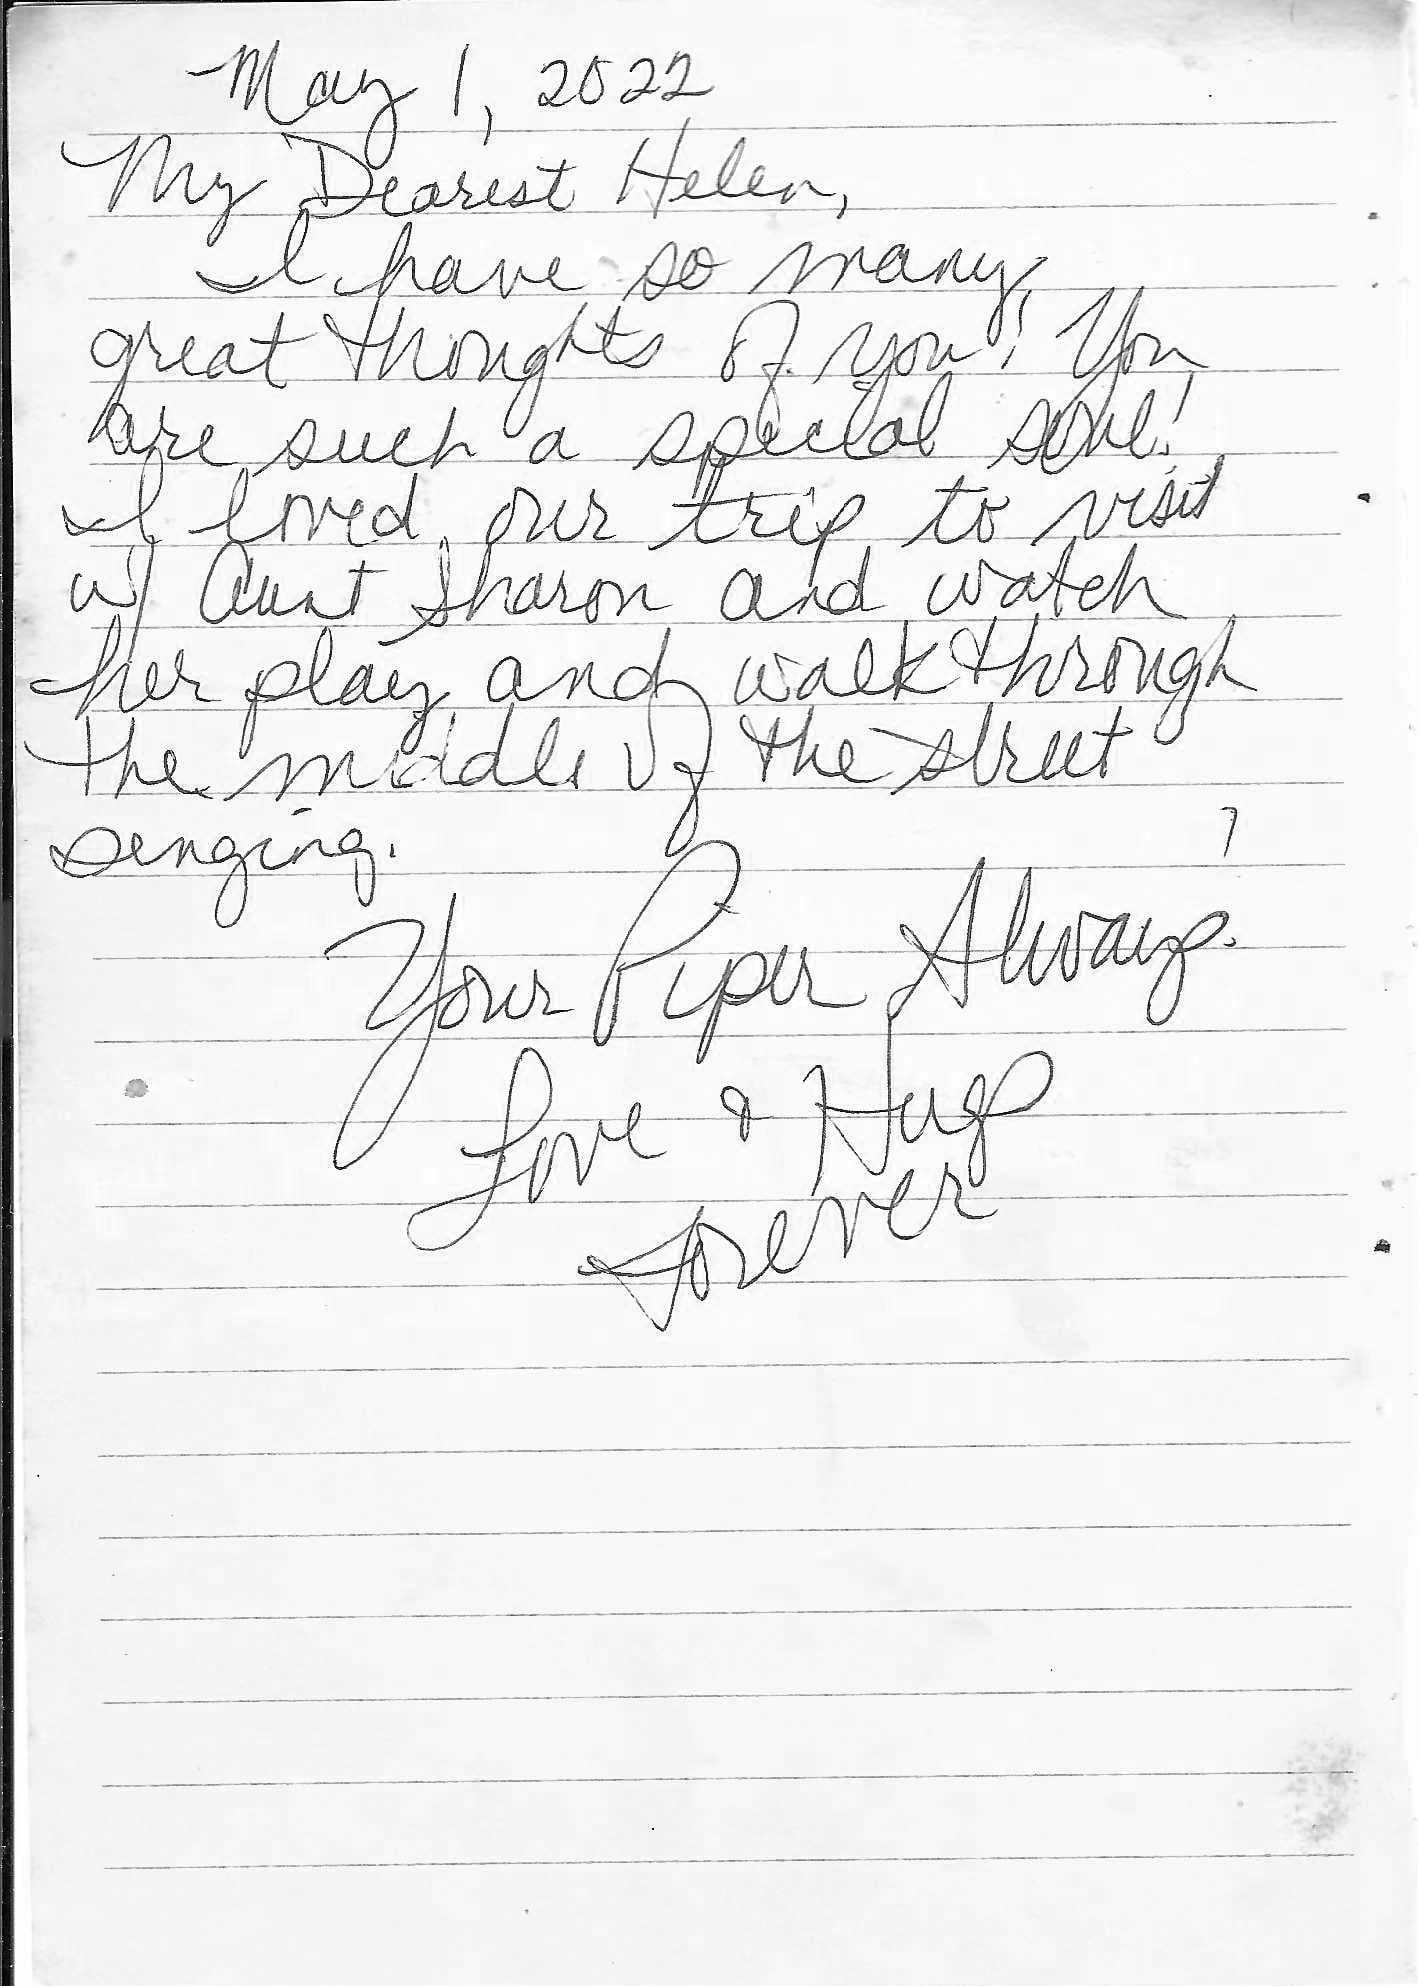 May 1, 2022
My Dearest Helen,
I have so many
great thoughts of you! You
are such a special soul!
I loved our trip to visit
w/ Aunt Sharon and watch
her play and walk through
the middle of the street
singing.
Your Piper Always.
Love & Hugs
Forever